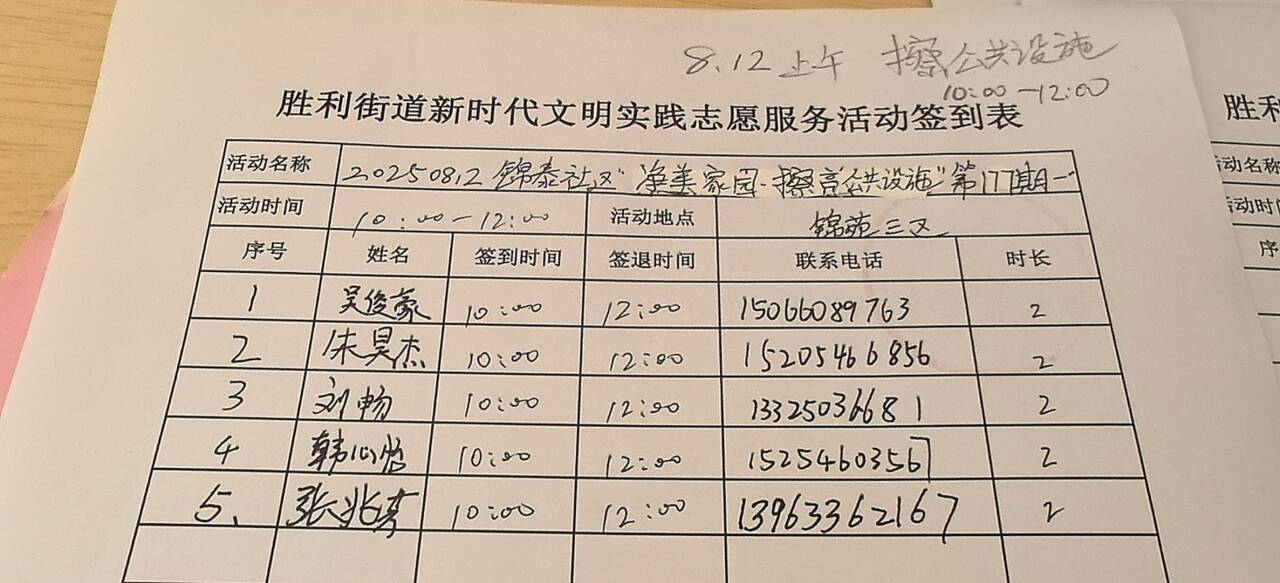 8.12上午 擦公共设施
10:00-12:00
胜利街道新时代文明实践志愿服务活动签到表
活动名称 20250812锦泰社区"净美家园·擦亮公共设施"第177期
活动时间 10:00-12:00 活动地点 锦苑三区
序号 姓名 签到时间 签退时间 联系电话 时长
1 吴俊豪 10:00 12:00 15066089763 2
2 朱昊杰 10:00 12:00 15205466856 2
3 刘畅 10:00 12:00 13325036681 2
4 韩心怡 10:00 12:00 15254603567 2
5. 张兆 10:00 12:00 13963362167 2
胜利
活动名称
活动时间
序号